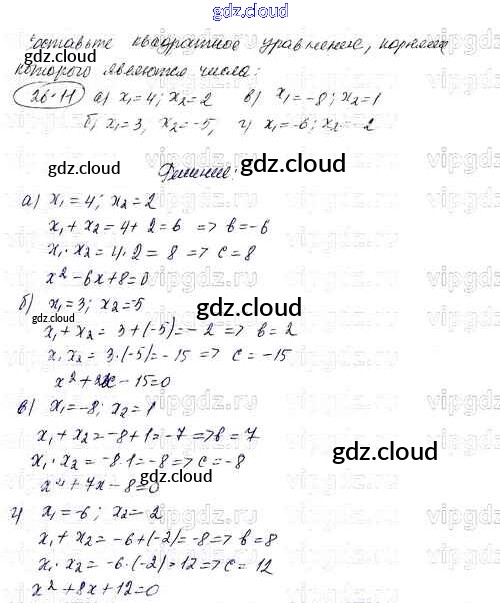 gdz.cloud
Составьте квадратное уравнение, корнями
которого являются числа:
26.11 а) x₁=4; x₂=2 в) x₁=-8; x₂=1
б) x₁=3, x₂=-5, г) x₁=-6; x₂=-2
gdz.cloud gdz.cloud
Решение:
а) x₁=4; x₂=2
x₁+x₂=4+2=6 => b=-6
x₁·x₂=4·2=8 => c=8
x²-6x+8=0
б) x₁=3; x₂=-5
gdz.cloud gdz.cloud
x₁+x₂=3+(-5)=-2 => b=2
x₁x₂=3·(-5)=-15 => c=-15
x²+2x-15=0
в) x₁=-8; x₂=1
x₁+x₂=-8+1=-7 => b=7
x₁·x₂=-8·1=-8 => c=-8
gdz.cloud gdz.cloud
x²+7x-8=0
г) x₁=-6; x₂=-2
x₁+x₂=-6+(-2)=-8 => b=8
x₁·x₂=-6·(-2)=12 => c=12
x²+8x+12=0